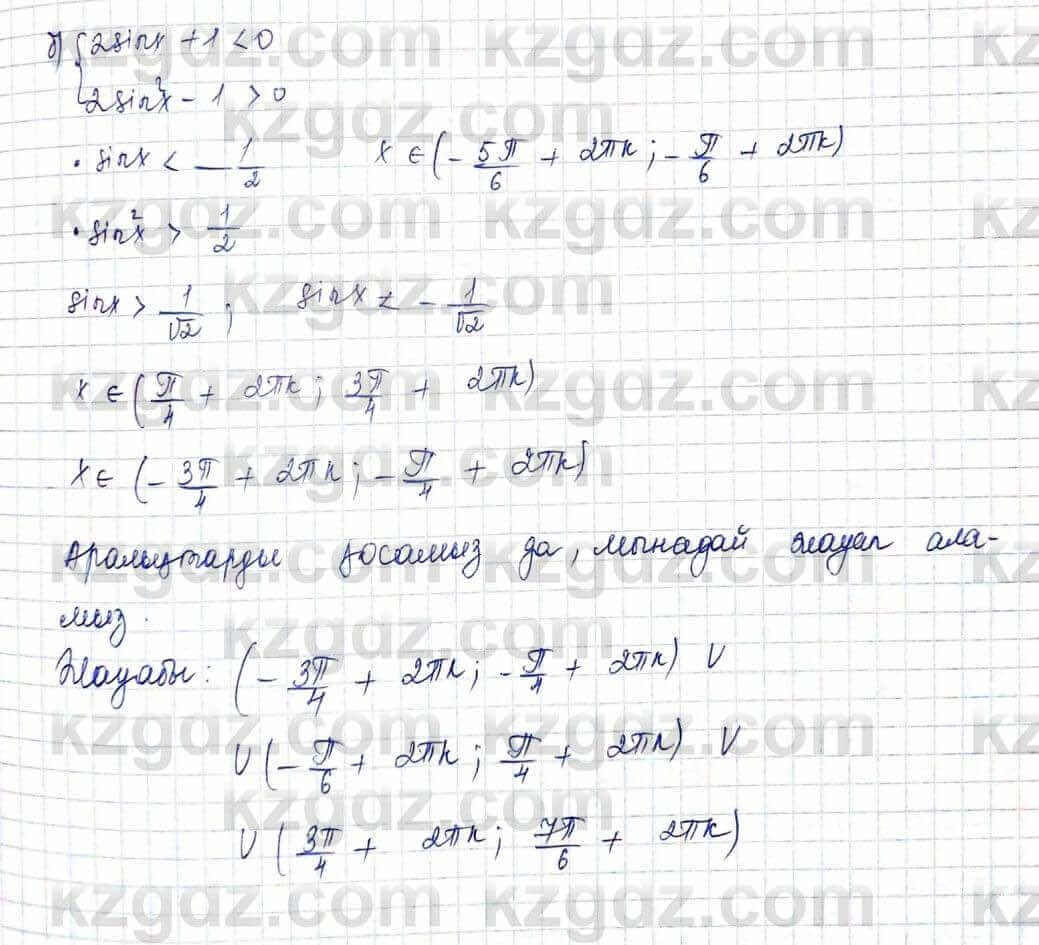 б) { 2sinx + 1 < 0
2sin²x - 1 > 0
• sinx < - 1/2 x ∈ (- 5π/6 + 2πk ; - π/6 + 2πk)
• sin²x > 1/2
sinx > 1/√2 ; sinx < - 1/√2
x ∈ (π/4 + 2πk ; 3π/4 + 2πk)
x ∈ (- 3π/4 + 2πk ; - π/4 + 2πk)
Аралықтарды қосамыз да, мынадай жауап ала-
мыз.
Жауабы: (- 3π/4 + 2πk ; - π/4 + 2πk) ∪
∪ (- π/6 + 2πk ; π/4 + 2πk) ∪
∪ (3π/4 + 2πk ; 7π/6 + 2πk)
kzgdz.com